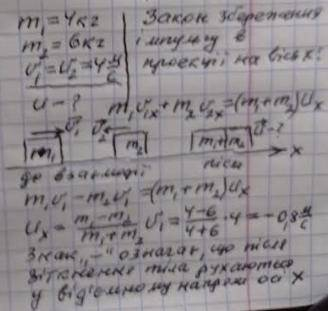 m₁ = 4кг
m₂ = 6кг
υ₁ = υ₂ = 4 м/с
u - ?
Закон збереження
імпульсу в
проекції на вісь x:
m₁υ₁ₓ + m₂υ₂ₓ = (m₁+m₂)uₓ
υ₁ υ₂ u - ?
m₁ m₂ m₁+m₂ x
до взаємодії після
m₁υ₁ - m₂υ₁ = (m₁+m₂)uₓ
uₓ = (m₁-m₂)/(m₁+m₂) υ₁ = (4-6)/(4+6) · 4 = -0,8 м/с
Знак „-" означає, що після
зіткнення тіла рухаються
у від'ємному напрямі осі x